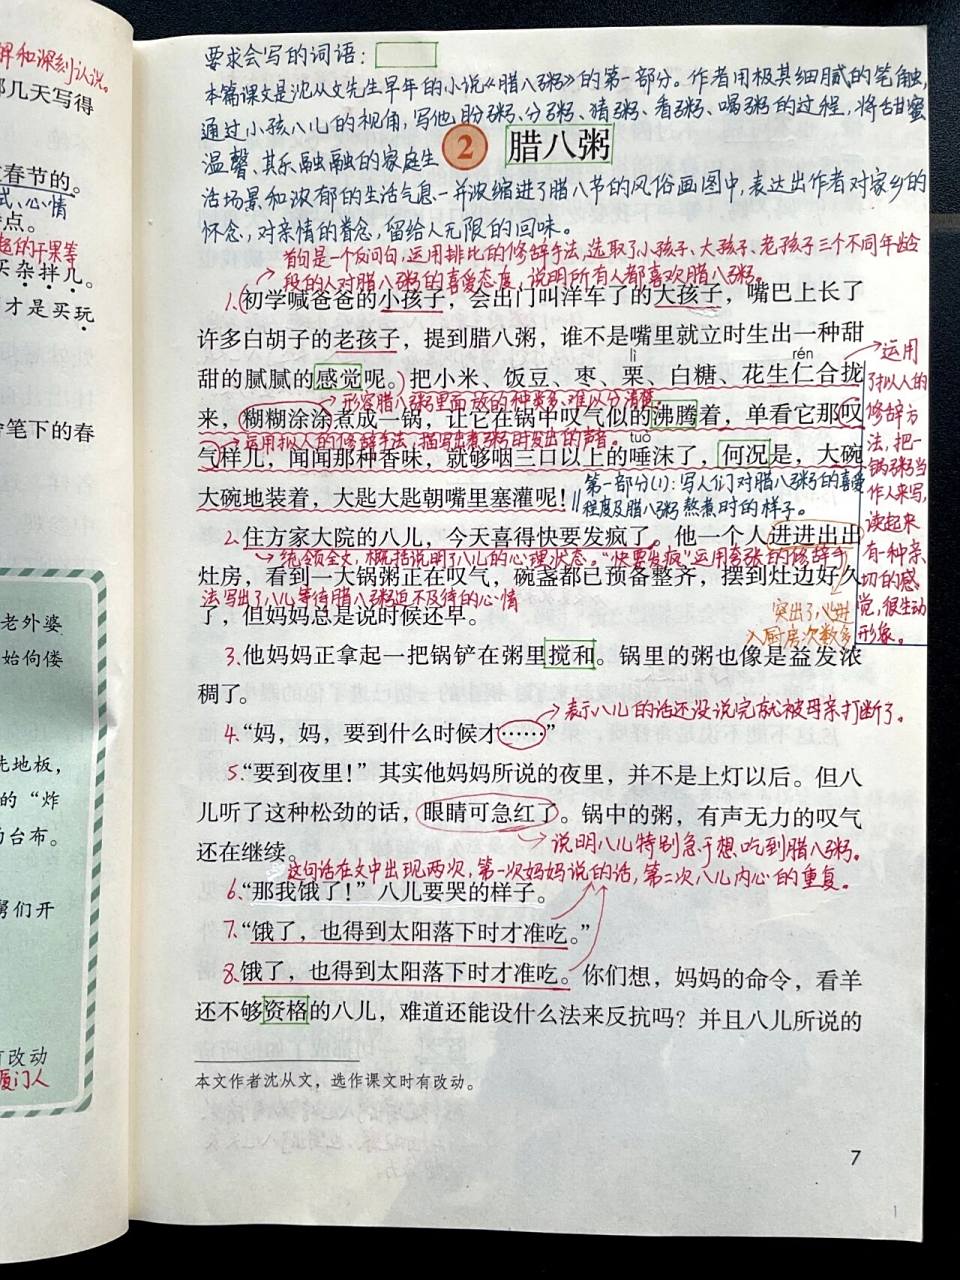 解和深刻认识。
那几天写得
过春节的。
式、心情
特点。
起的开果等
买杂拌儿。
才是买玩
笔下的春
老外婆
始佝偻
洗地板，
的“炸
的台布。
舅们开
有改动
厦门人
要求会写的词语：
本篇课文是沈从文先生早年的小说《腊八粥》的第一部分。作者用极其细腻的笔触，
通过小孩八儿的视角，写他盼粥、分粥、猜粥、看粥、喝粥的过程，将甜甜蜜
温馨、其乐融融的家庭生
2 腊八粥
活场景和浓郁的生活气息一并浓缩进了腊八节的风俗画图中，表达出作者对家乡的
怀念，对亲情的眷念，留给人无限的回味。
首句是一个反问句，运用排比的修辞手法，选取了小孩子、大孩子、老孩子三个不同年龄
段的人对腊八粥的喜爱态度，说明所有人都喜欢腊八粥。
1.初学喊爸爸的小孩子，会出门叫洋车了的大孩子，嘴巴上长了
许多白胡子的老孩子，提到腊八粥，谁不是嘴里就立时生出一种甜
lì rén
甜的腻腻的感觉呢。把小米、饭豆、枣、栗、白糖、花生仁合拢
形容腊八粥里面放的种类多，难以分清楚。
来，糊糊涂涂煮成一锅，让它在锅中叹气似的沸腾着，单看它那叹
运用拟人的修辞手法，描写出煮粥时发出的声音。
tuò
气样儿，闻闻那种香味，就够咽三口以上的唾沫了，何况是，大碗
大碗地装着，大匙大匙朝嘴里塞灌呢！
第一部分(1)：写人们对腊八粥的喜爱
程度及腊八粥熬煮时的样子。
运用
了拟人的
修辞方
法，把一
锅粥当
作人来写，
读起来
有一种亲
切的感
觉，很生动
形象。
2.住方家大院的八儿，今天喜得快要发疯了。他一个人进进出出
统领全文，概括说明了八儿的心理状态。“快要发疯”运用夸张的修辞手
灶房，看到一大锅粥正在叹气，碗盏都已预备整齐，摆到灶边好久
法写出了八儿等待腊八粥迫不及待的心情
了，但妈妈总是说时候还早。
突出了他进
入厨房次数多
3.他妈妈正拿起一把锅铲在粥里搅和。锅里的粥也像是益发浓
稠了。
表示八儿的话还没说完就被母亲打断了。
4.“妈，妈，要到什么时候才……”
5.“要到夜里！”其实他妈妈所说的夜里，并不是上灯以后。但八
儿听了这种松劲的话，眼睛可急红了。锅中的粥，有声无力的叹气
说明八儿特别急于想吃到腊八粥。
还在继续。
这句话在文中出现两次，第一次妈妈说的话，第二次八儿内心的重复。
6.“那我饿了！”八儿要哭的样子。
7.“饿了，也得到太阳落下时才准吃。”
8.饿了，也得到太阳落下时才准吃。你们想，妈妈的命令，看羊
还不够资格的八儿，难道还能设什么法来反抗吗？并且八儿所说的
本文作者沈从文，选作课文时有改动。
7
1